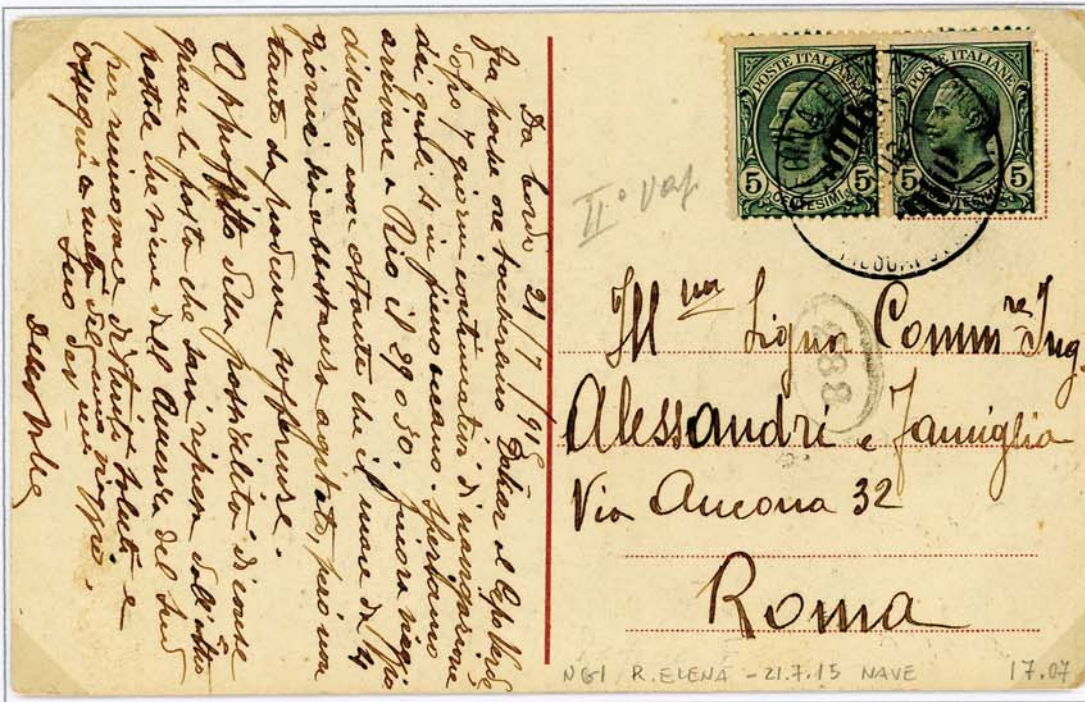 Da bordo 21/7/915
Fra poche ore toccheremo Dakar al Capo Verde
Dopo 7 giorni continuati di navigazione
dei quali 4 in pieno oceano. Speriamo
arrivare a Rio il 29 o 30. Finora viaggio
discreto non ostante che il mare da 4
giorni sia abbastanza agitato, però non
tanto da produrre sofferenze.
Approfitto della possibilità di
la posta che sarà ripresa dall'altro
postale che viene dall'America del Sud
per rinnovare distinti saluti e
ossequi a nulla viaggio.
Suo dev mi
II° vap
POSTE ITALIANE
5 CENTESIMI 5
POSTE ITALIANE
5 CENTESIMI 5
Ill mo Signor Comm re Ing.
Alessandri e Famiglia
Via Ancona 32
Roma
NGI R. ELENA - 21.7.15 NAVE
17.07